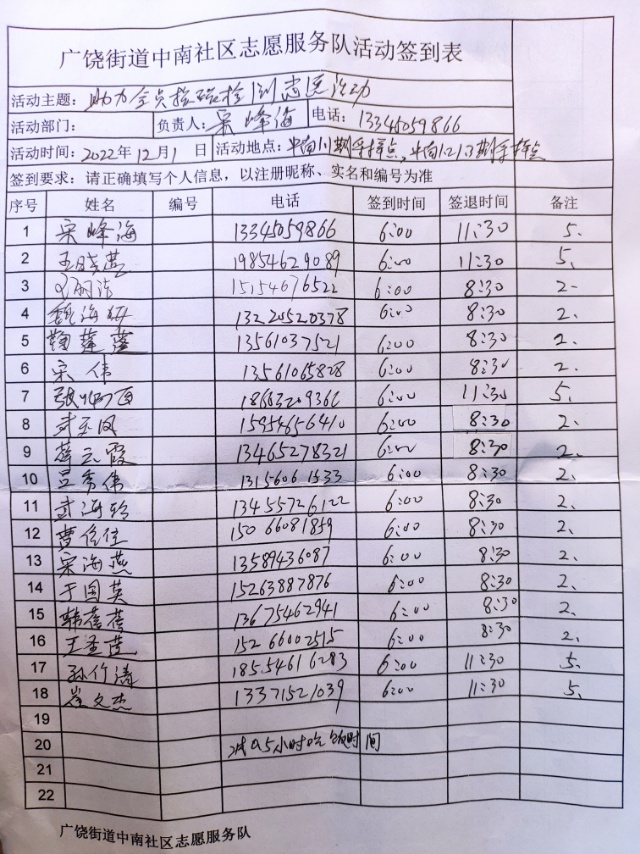 广饶街道中南社区志愿服务队活动签到表
活动主题: 助力全员核酸检测志愿活动
活动部门: 负责人: 宋峰海 电话: 13345059866
活动时间: 2022年12月1日 活动地点:
签到要求: 请正确填写个人信息，以注册昵称、实名和编号为准
序号 姓名 编号 电话 签到时间 签退时间 备注
1 宋峰海 13345059866 6:00 11:30 5、
2 王晓燕 19854629089 6:00 11:30 5、
3 15154676522 6:00 8:30 2、
4 魏海妍 13220520378 6:00 8:30 2、
5 鞠莲莲 13561037521 6:00 8:30 2、
6 宋伟 13561065828 6:00 8:30 2、
7 18663209366 6:00 11:30 5、
8 武玉凤 15954656410 6:00 8:30 2、
9 薛云霞 13465278321 6:00 8:30 2、
10 吕秀伟 13156061533 6:00 8:30 2、
11 13455726122 6:00 8:30 2、
12 曹佳佳 15066081859 6:00 8:30 2、
13 宋海燕 13589436087 6:00 8:30 2、
14 于国英 15263887876 6:00 8:30 2、
15 韩蓓蓓 13675462941 6:00 8:30 2、
16 15266002515 6:00 8:30 2、
17 孙竹涛 18554616283 6:00 11:30 5、
18 崔文杰 13371521039 6:00 11:30 5、
19
20 减0.5小时吃饭时间
21
22
广饶街道中南社区志愿服务队